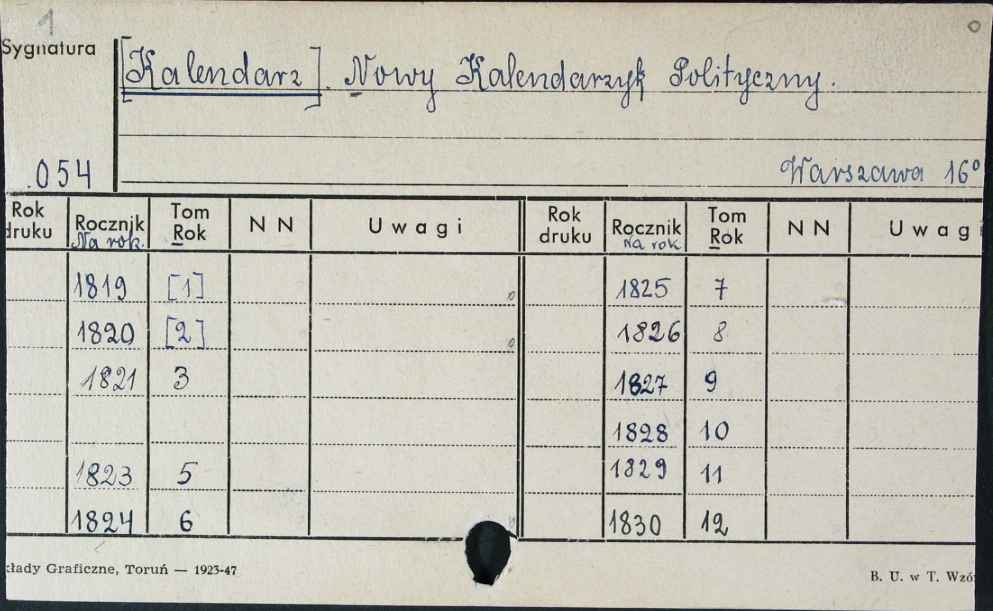 1
Sygnatura
[Kalendarz]. Nowy Kalendarzyk Polityczny.
.054
Warszawa 16°
Rok druku Rocznik Na rok. Tom Rok NN Uwagi Rok druku Rocznik Na rok Tom Rok NN Uwagi
1819 [1] 1825 7
1820 [2] 1826 8
1821 3 1827 9
1828 10
1823 5 1829 11
1824 6 1830 12
kłady Graficzne, Toruń — 1923-47 B. U. w T. Wzó